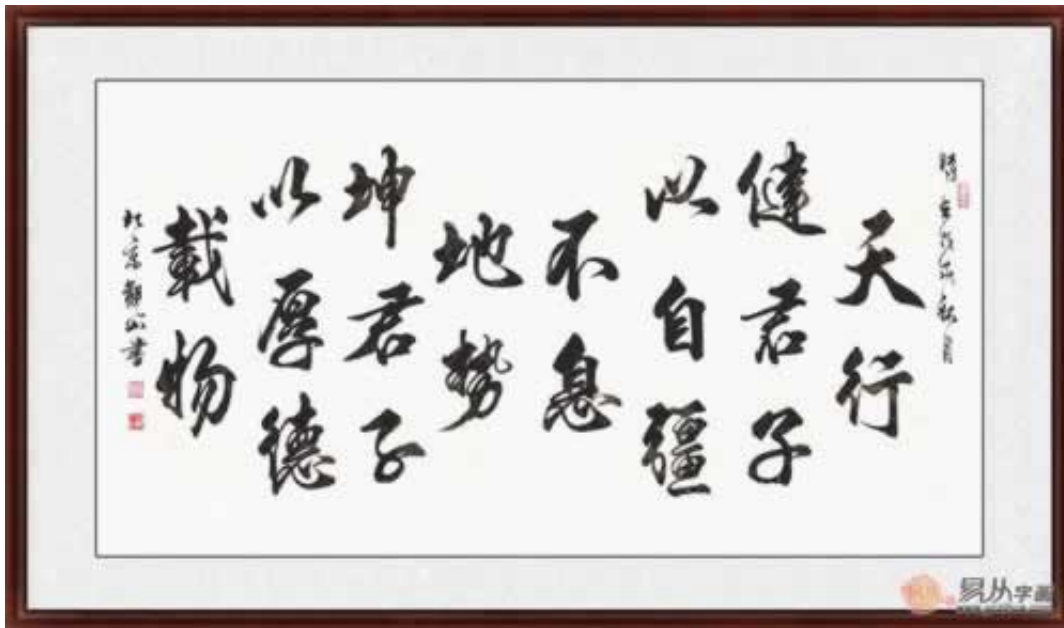 天行
健君子
以自疆
不息
地勢
坤君子
以厚德
載物
書
易从字画